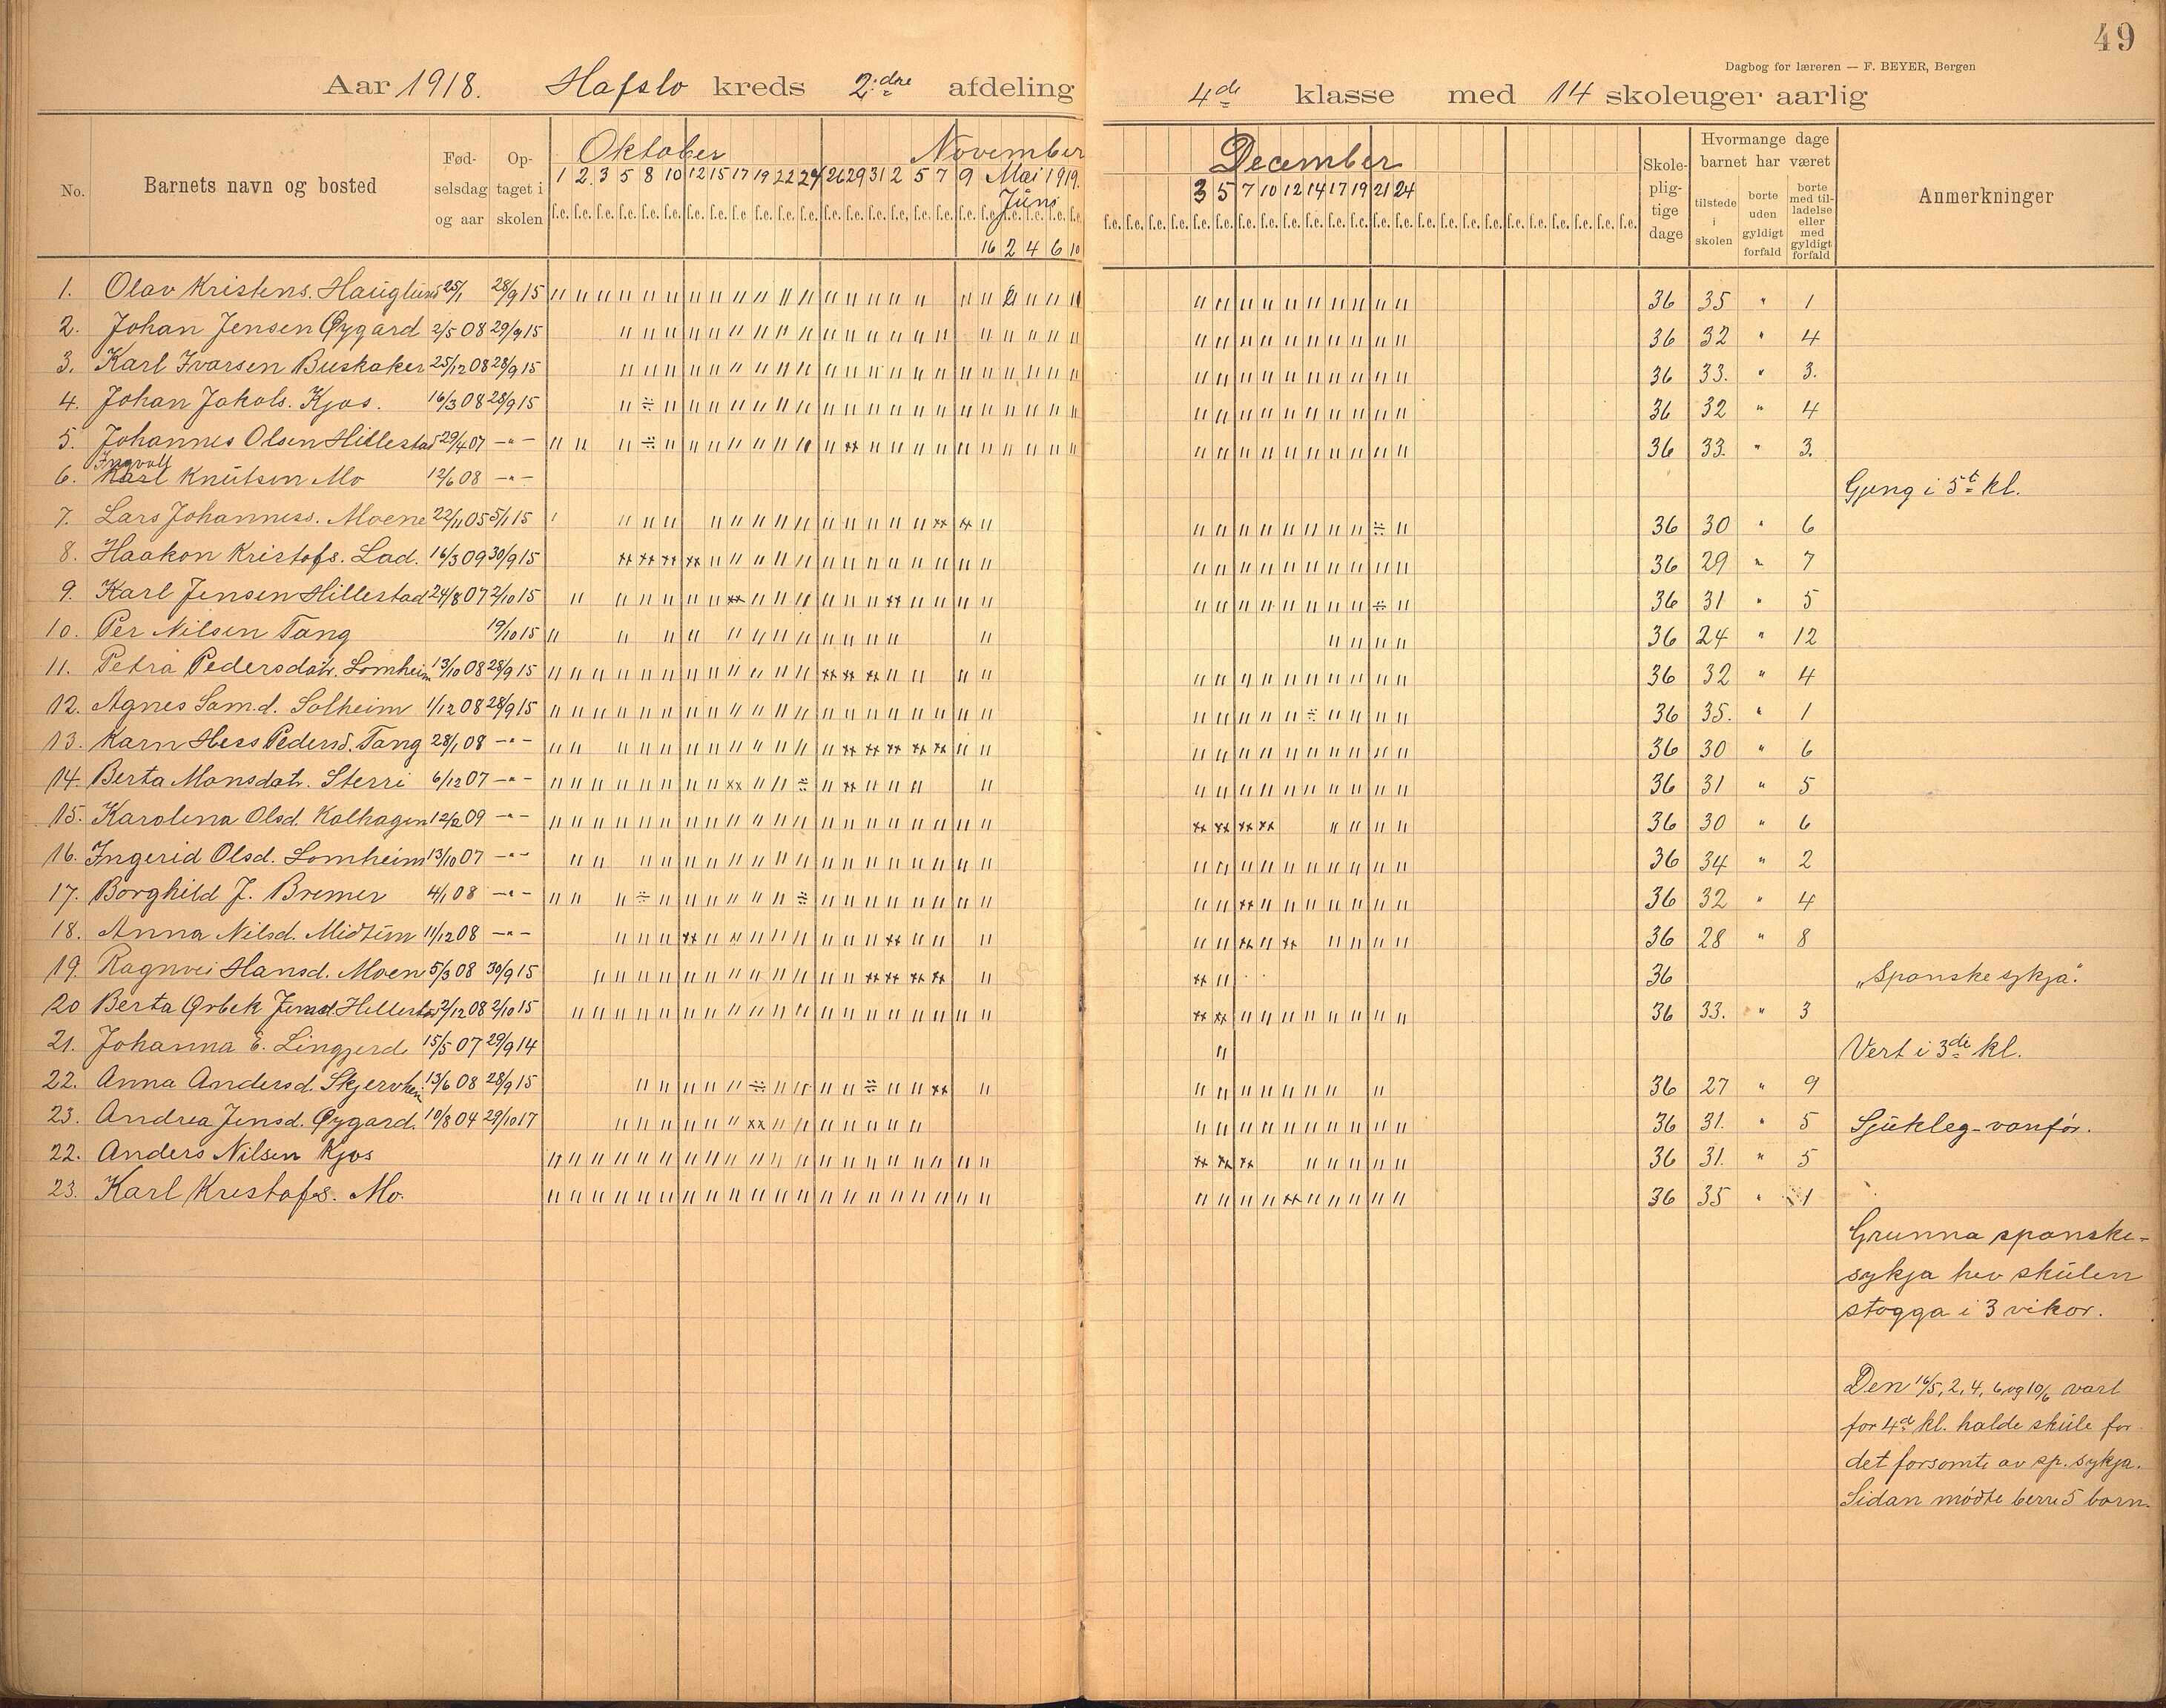 49
Dagbog for læreren — F. BEYER, Bergen
Aar 1918. Hafslo kreds 2.dre afdeling 4de klasse med 14 skoleuger aarlig
No. Barnets navn og bosted Fød-selsdag og aar Op-taget i skolen Skole-plig-tige dage Hvormange dage barnet har været Anmerkninger
tilstede i skolen borte uden gyldigt forfald borte med til-ladelse eller med gyldigt forfald
Oktober November December
1 2 3 5 8 10 12 15 17 19 22 24 26 29 31 2 5 7 9 Mai 1919. 3 5 7 10 12 14 17 19 21 24
Juni
16 2 4 6 10
1. Olav Kristens. Hauglund 25/1 28/9 15 36 35 " 1
2. Johan Jensen Øygard 2/5 08 29/9 15 36 32 " 4
3. Karl Ivarsen Buskaker 25/12 08 28/9 15 36 33. " 3.
4. Johan Jakobs. Kjos. 16/3 08 28/9 15 36 32 " 4
5. Johannes Olsen Hillestad 29/4 07 -"- 36 33. " 3.
Ingvall
6. Karl Knutsen Mo 12/6 08 -"- Gjeng i 5te kl.
7. Lars Johanness. Moene 22/11 05 5/1 15 36 30 " 6
8. Haakon Kristofs. Lad. 16/3 09 30/9 15 36 29 " 7
9. Karl Jensen Hillestad 24/8 07 2/10 15 36 31 " 5
10. Per Nilsen Tang 19/10 15 36 24 " 12
11. Petra Pedersdatr. Lomheim 13/10 08 28/9 15 36 32 " 4
12. Agnes Sam.d. Solheim 1/12 08 28/9 15 36 35. " 1
13. Karn Hess Pedersd. Tang 28/1 08 -"- 36 30 " 6
14. Berta Monsdatr. Sterri 6/12 07 -"- 36 31 " 5
15. Karolina Olsd. Kolhagen 12/2 09 -"- 36 30 " 6
16. Ingerid Olsd. Lomheim 13/10 07 -"- 36 34 " 2
17. Borghild J. Bremer 4/1 08 -"- 36 32 " 4
18. Anna Nilsd. Midtun 11/12 08 -"- 36 28 " 8
19. Ragnvei Hansd. Moen 5/3 08 30/9 15 36 „Spanske sykja".
20 Berta Ørbek Jensd. Hillestad 2/12 08 2/10 15 36 33. " 3
21. Johanna E. Lingjerd 15/5 07 29/9 14 Vert i 3die kl.
22. Anna Andersd. Skjervheim 13/6 08 28/9 15 36 27 " 9
23. Andrea Jensd. Øygard. 10/8 04 29/10 17 36 31. " 5 Sjukleg-vanfør.
22. Anders Nilsen Kjos 36 31. " 5
23. Karl Kristofs. Mo. 36 35 " 1
Grunna spanske-
sykja hev skulen
stogga i 3 vikor.
Den 16/5, 2, 4, 6 og 10/6 vart
for 4de kl. halde skule for
det forsomte av sp. sykja.
Sidan mødte berre 5 born.